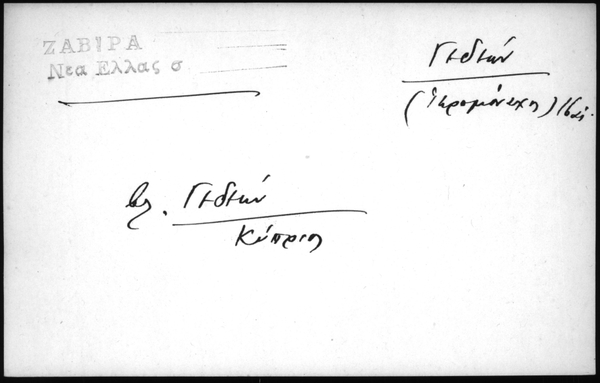 ΖΑΒΙΡΑ
Νεα Ελλας σ
Γεδεών
(Ἱερομόναχος)
βλ. Γεδεών
Κύπριος